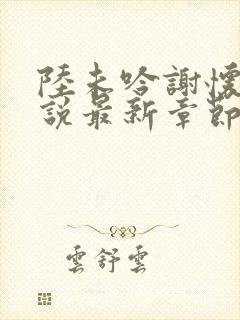 陸未吟謝懷
說最新章節
雲舒雲